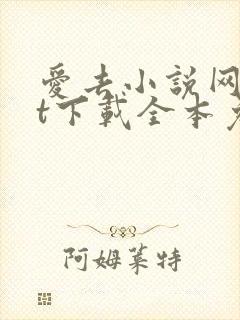 愛去小説网
t下載全本
阿姆莱特